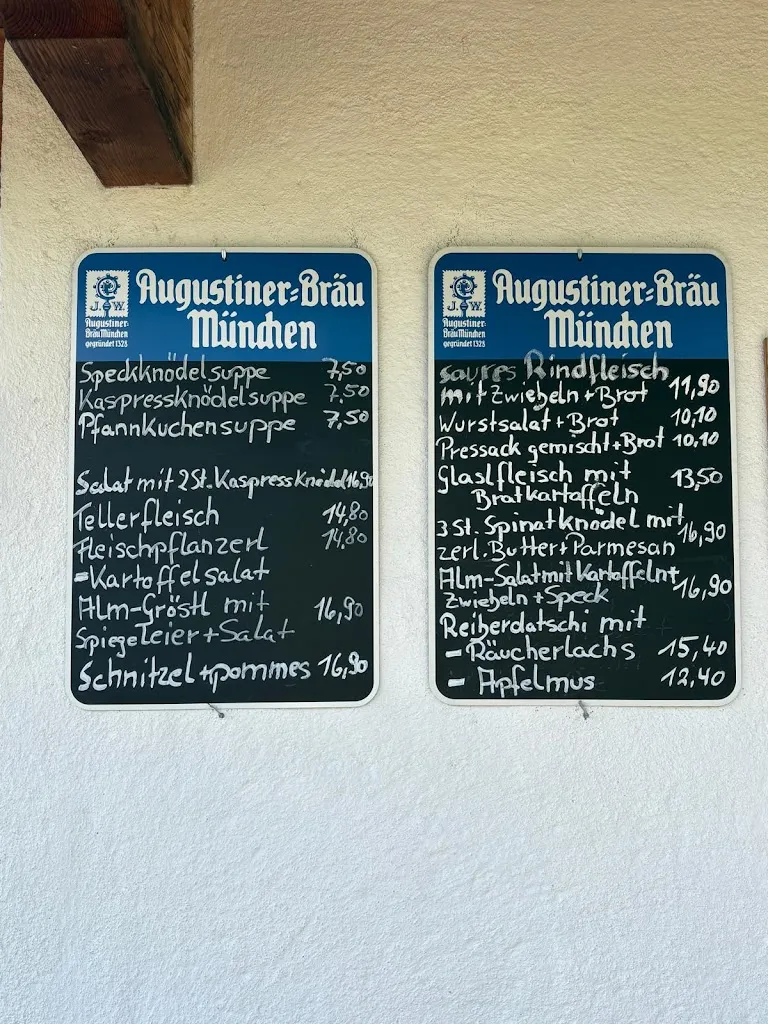 Augustiner-Bräu
München
J. W.
Augustiner-
Bräu München
gegründet 1328
Speckknödelsuppe 7,50
Kaspressknödelsuppe 7,50
Pfannkuchensuppe 7,50
Salat mit 2 St. Kaspressknödel 16,90
Tellerfleisch 14,80
Fleischpflanzerl 14,80
-Kartoffelsalat
Alm-Gröstl mit 16,90
Spiegeleier + Salat
Schnitzel + pommes 16,90
Augustiner-Bräu
München
J. W.
Augustiner-
Bräu München
gegründet 1328
saures Rindfleisch
mit Zwiebeln + Brot 11,90
Wurstsalat + Brot 10,10
Pressack gemischt + Brot 10,10
Glaslfleisch mit 13,50
Bratkartoffeln
3 St. Spinatknödel mit 16,90
zerl. Butter + Parmesan
Alm-Salat mit Kartoffeln + 16,90
Zwiebeln + Speck
Reiberdatschi mit
- Räucherlachs 15,40
- Apfelmus 12,40